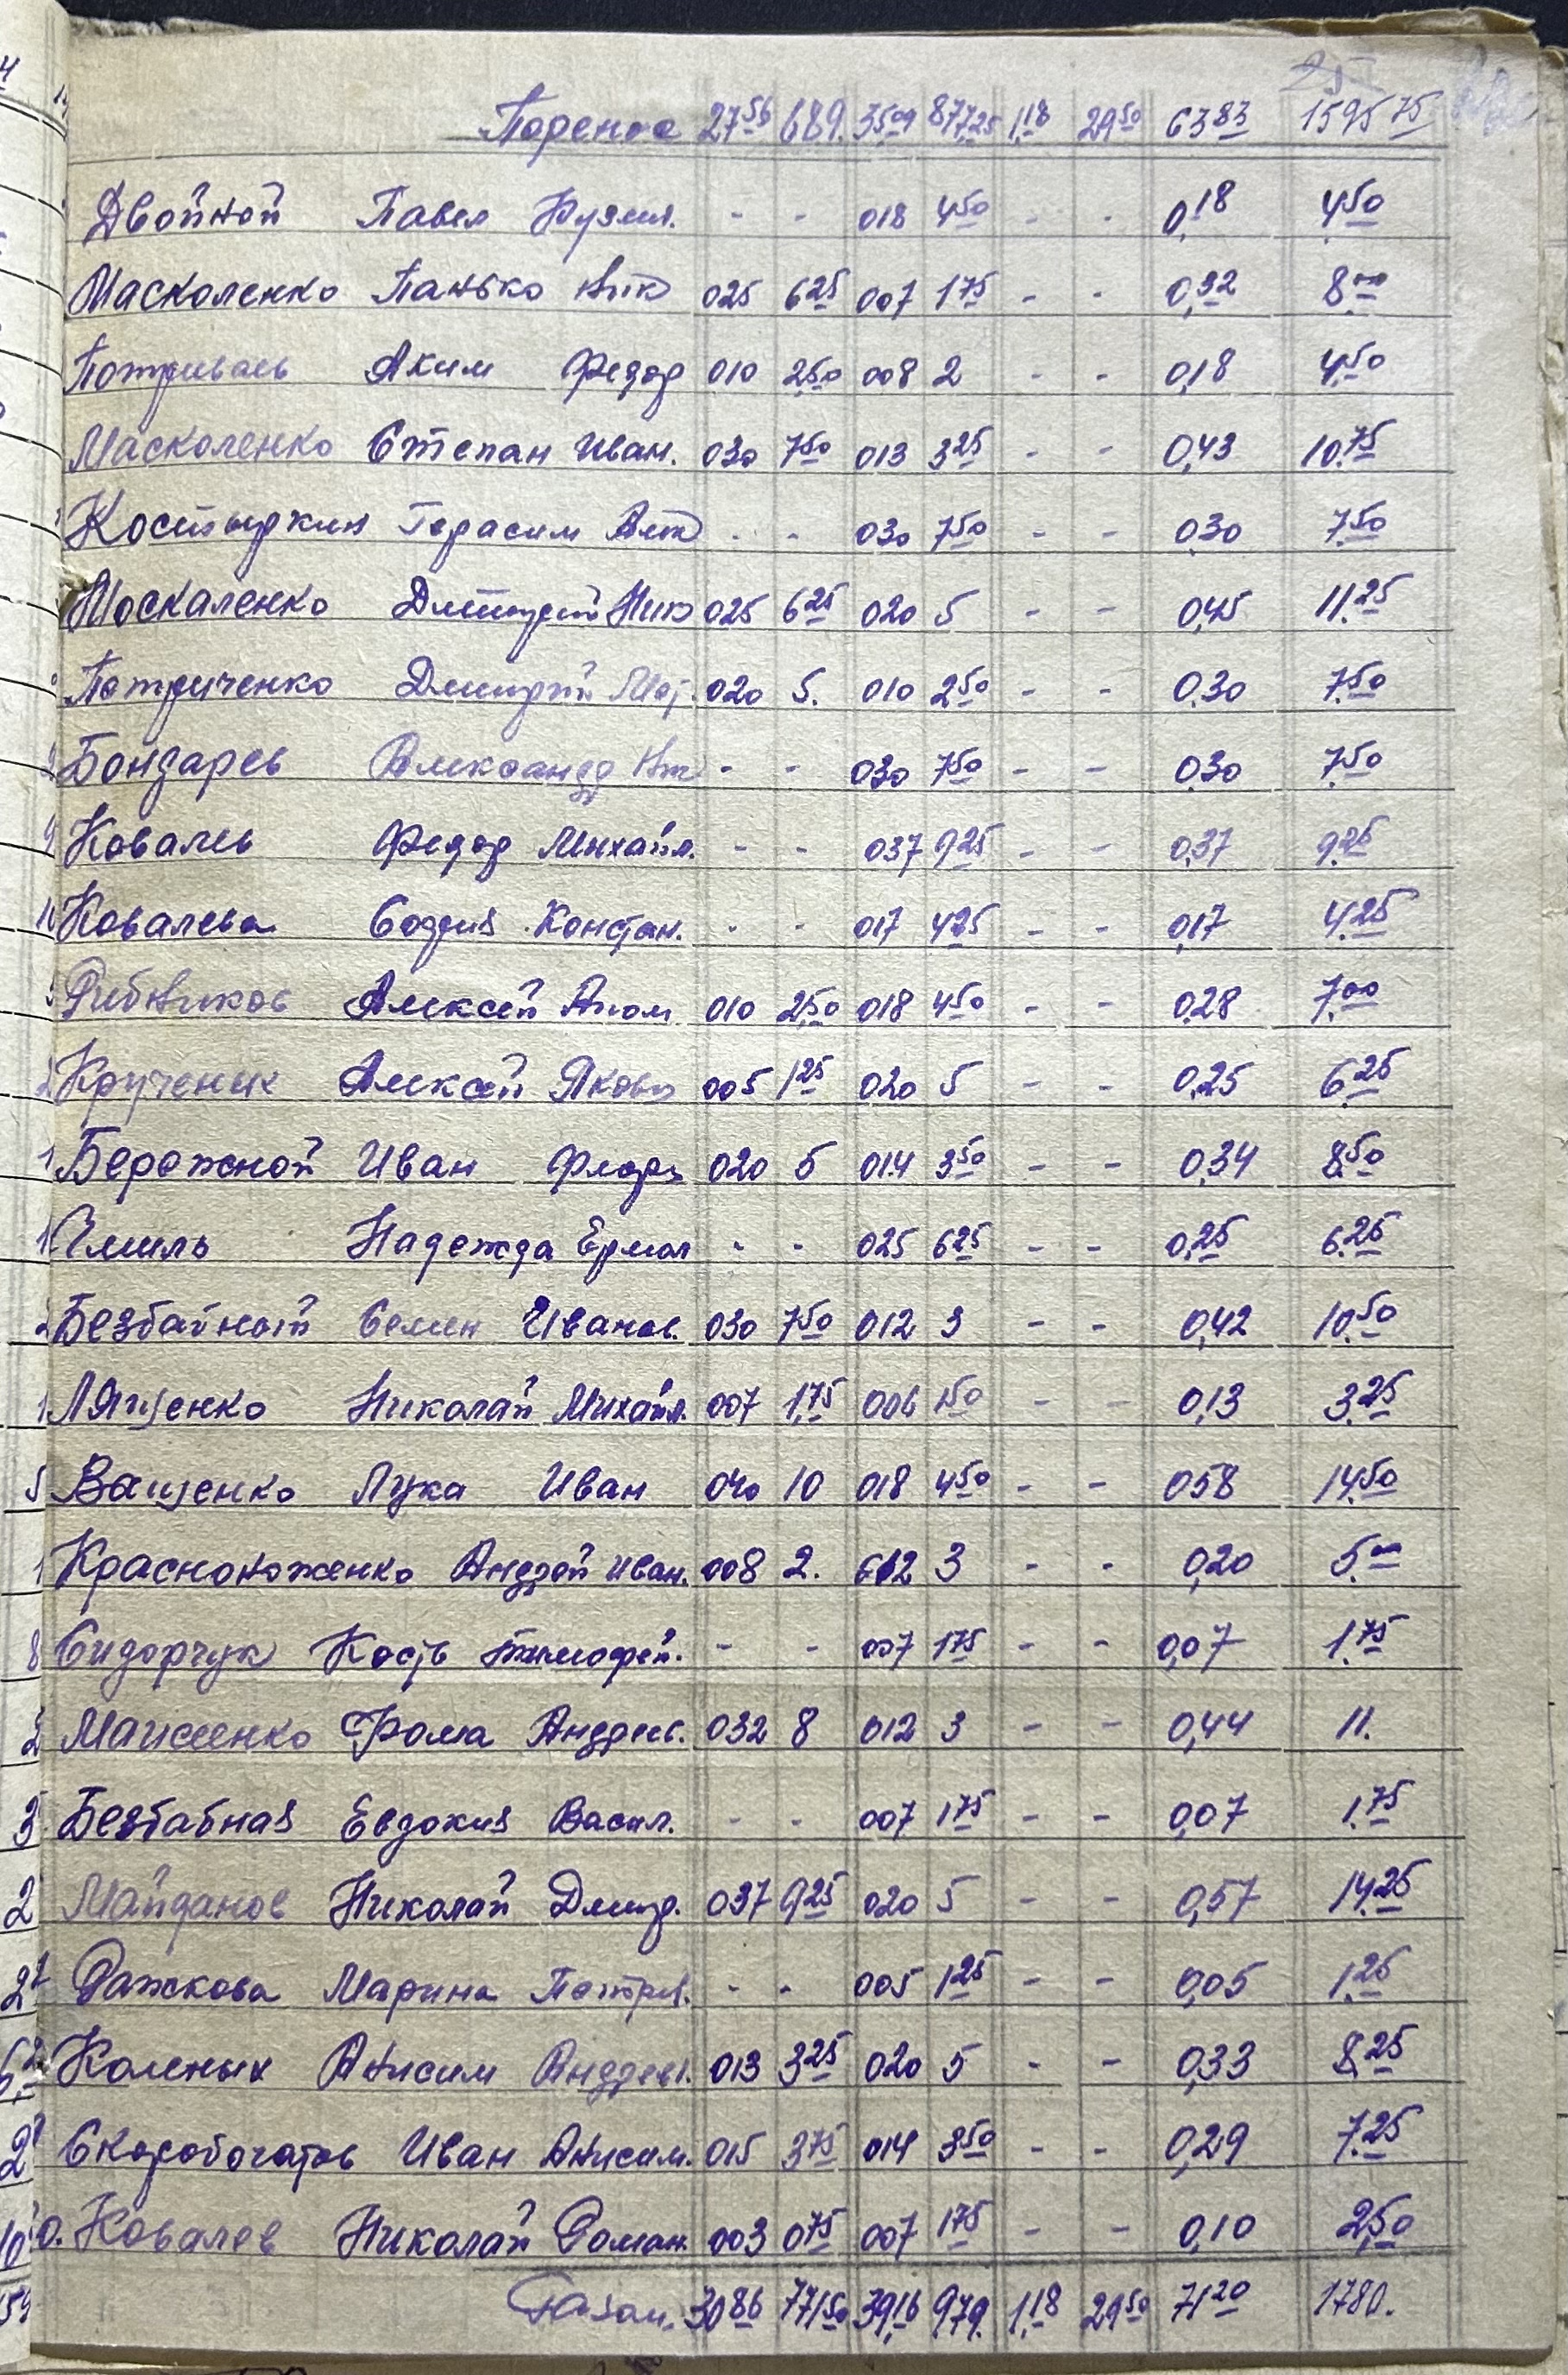 25
Перенос 27 56 689. 35 09 877,25 1 18 29 50 63 83 1595 75
Двойной Павел Кузмич. - - 018 4 50 - - 0,18 4 50
Масколенко Панько Ник 025 6 25 007 1 75 - - 0,32 8 00
Аким Федор 010 2,50 008 2 - - 0,18 4,50
Масколенко Степан Иван. 030 7 50 013 3 25 - - 0,43 10.75
Костыркин Герасим - - 030 7 50 - - 030 7.50
Москаленко Дмитрий Ник 025 6 25 020 5 - - 0,45 11.25
Петриченко Дмитрий 020 5. 010 2 50 - - 0.30 7.50
Бондарев Александр - - 030 7 50 - - 0,30 7.50
Ковалев Федор Михайл. - - 037 9 25 - - 0,37 9.25
Ковалева София Констан. - - 017 4 25 - - 0,17 4.25
Рибников Алексей 010 2,50 018 4 50 - - 0.28 7.00
Крученик Алексей Яков 005 1 25 020 5 - - 0.25 6.25
Бережной Иван Федор 020 5 014 3 50 - - 0,34 8.50
Чмиль Надежда Ермол - - 025 6 25 - - 0,25 6.25
Безбатной Семен Иванов. 030 7 50 012 3 - - 0,42 10.50
Лященко Николай Михайл. 007 1,75 006 1 50 - - 0,13 3.25
Ващенко Лука Иван 040 10 018 4 50 - - 058 14.50
Красноноженко Андрей Иван. 008 2. 012 3 - - 0,20 5.00
Сидорчук Кость Тимофей. - - 007 1 75 - - 0,07 1.75
Фома Андреев. 032 8 012 3 - - 0,44 11.
Безбабная Евдокия Васил. - - 007 1 75 - - 0,07 1.75
Майданов Николай Дмитр. 037 9 25 020 5 - - 0,57 14.25
Ражкова Марина Петров. - - 005 1 25 - - 0,05 1.25
Коленик Анисим Андреев. 013 3 25 020 5 - - 0,33 8,25
Скоробогатов Иван Анисим. 015 3 75 014 3 50 - - 0,29 7.25
Ковалев Николай Роман. 003 0 75 007 1 75 - - 0,10 2,50
Разом. 30 86 771 50 39,16 979. 1,18 29 50 71 20 1780.